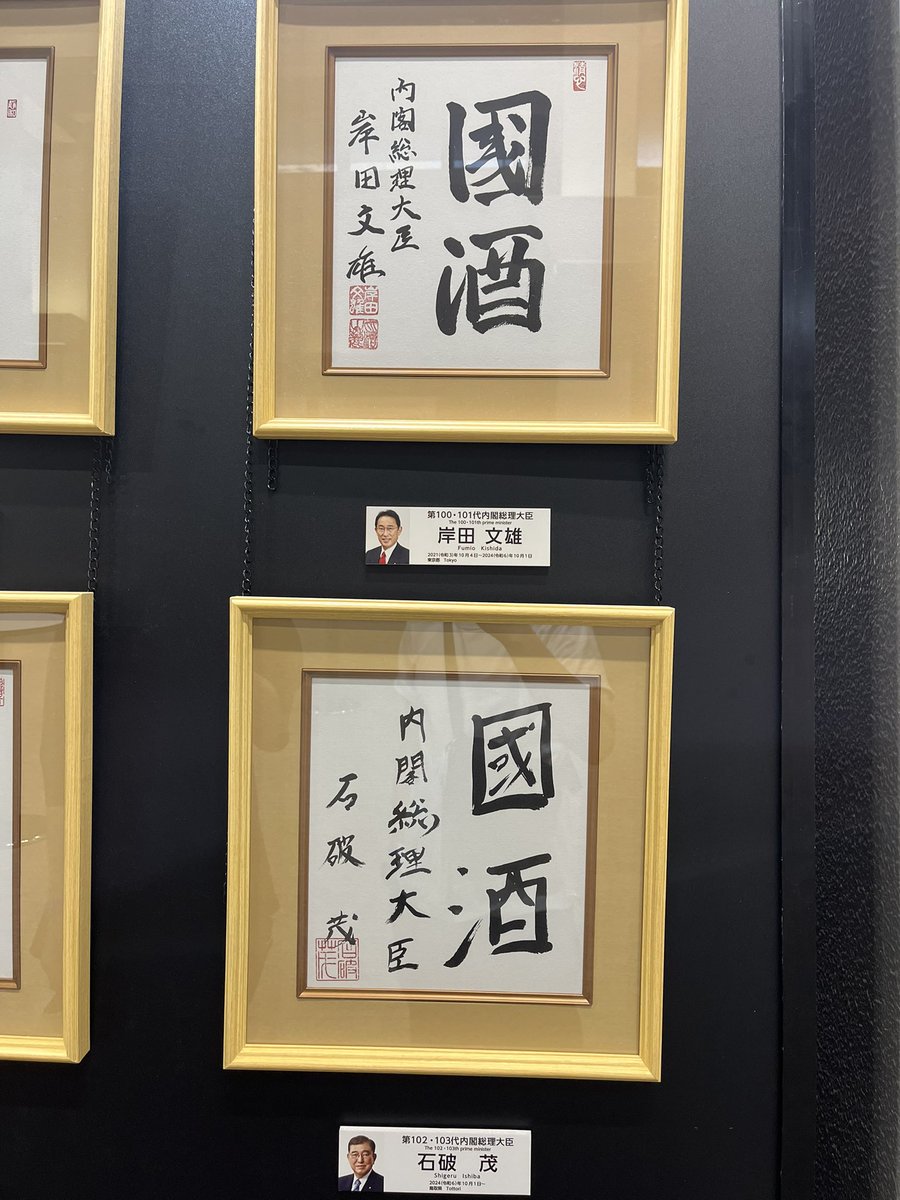 國酒
内閣総理大臣
岸田文雄
岸田
文雄
第100・101代内閣総理大臣
The 100・101th prime minister
岸田 文雄
Fumio Kishida
2021(令和3)年10月4日～2024(令和6)年10月1日
東京都 Tokyo
國酒
内閣総理大臣
石破 茂
石破
茂
第102・103代内閣総理大臣
The 102・103th prime minister
石破 茂
Shigeru Ishiba
2024(令和6)年10月1日～
鳥取県 Tottori